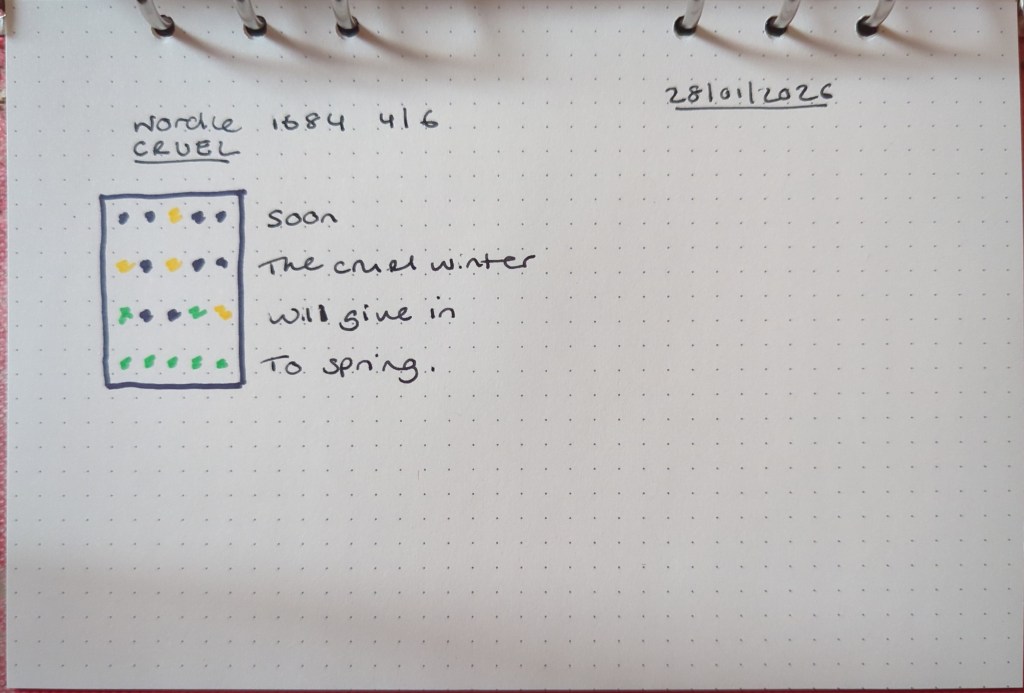 28/01/2026
Wordle 1684 4/6
CRUEL
Soon
The cruel winter
will give in
To spring.